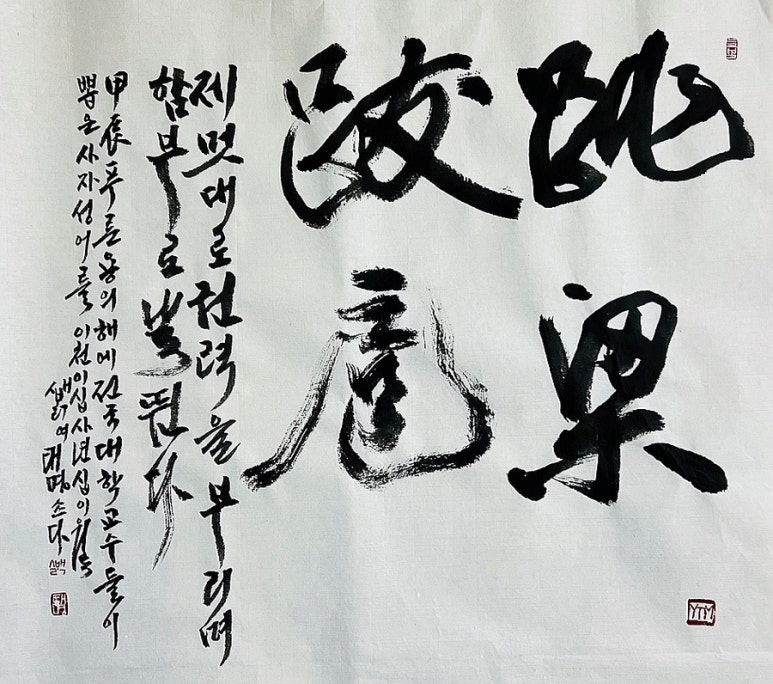 跳梁
跋扈
제멋대로 권력을 부리며
함부로 날뛴다
甲辰 푸른 용의 해에 전국 대학교수들이
뽑은 사자성어를 이천이십사년 십이월
여태명 쓰다
YTM